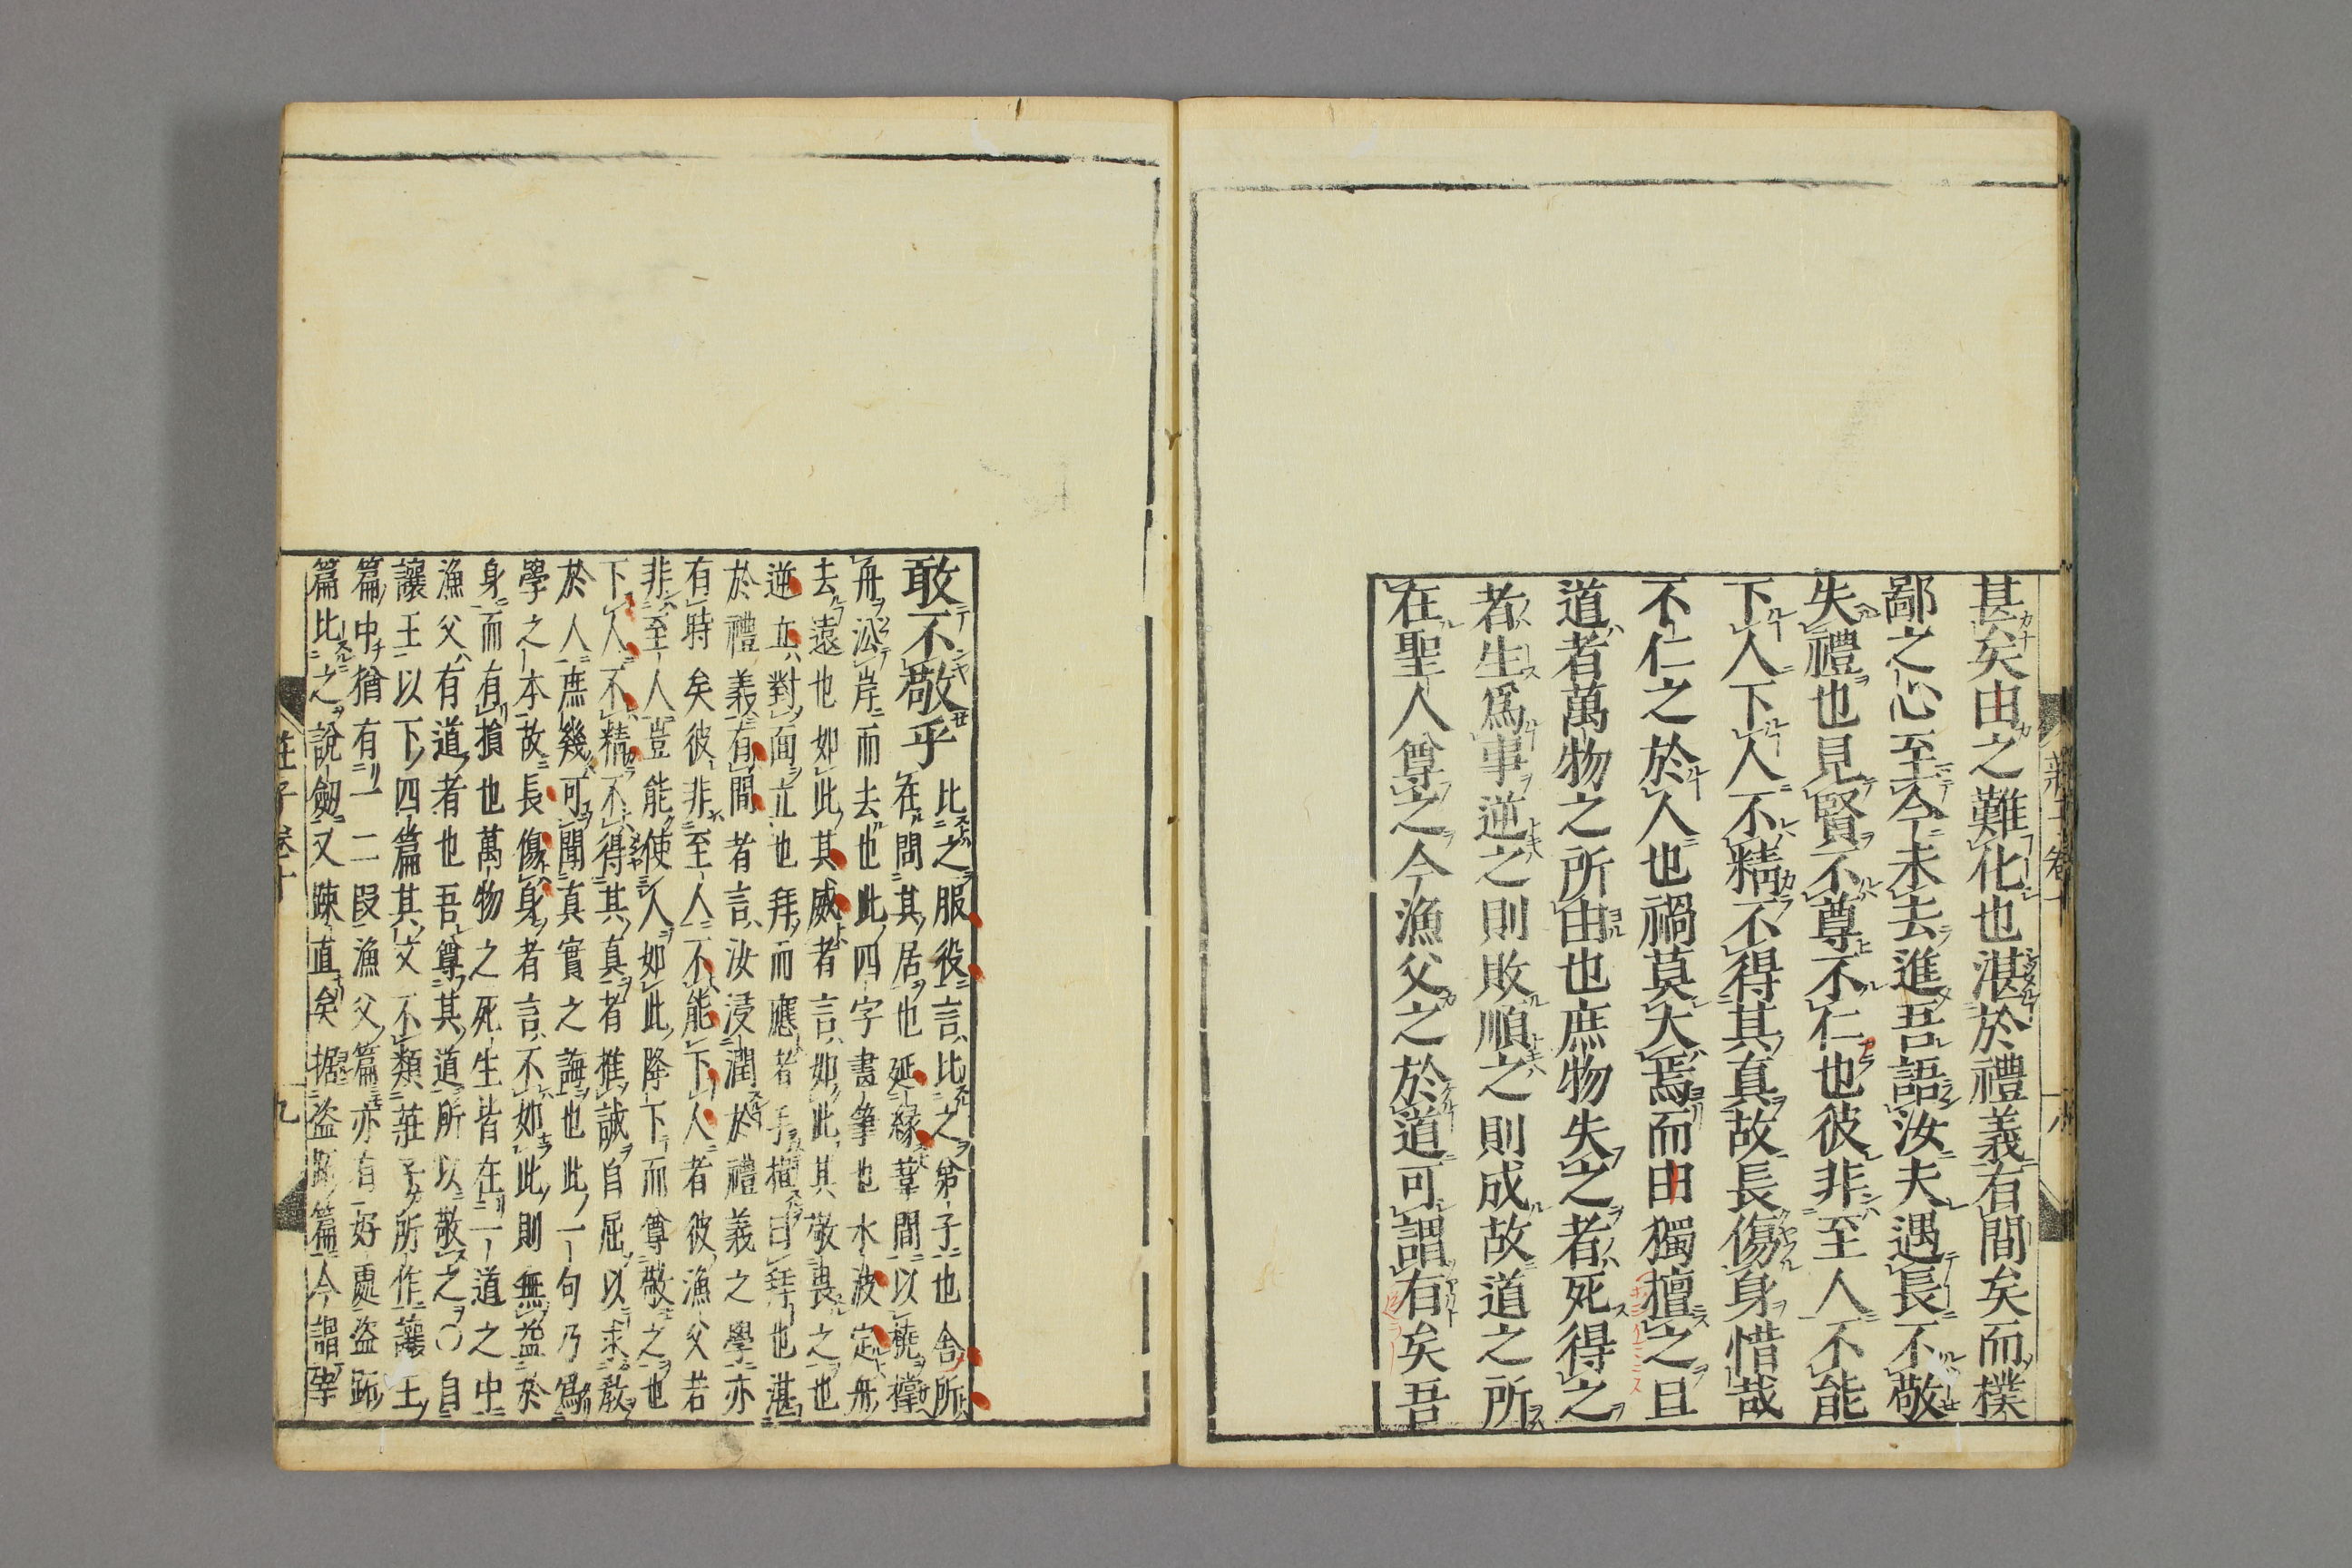 甚矣由之難化也湛於禮義有間矣而樸
鄙之心至今未去進吾語汝夫遇長不敬
失禮也見賢不尊不仁也彼非至人不能
下人下人不精不得其真故長傷身惜哉
不仁之於人也禍莫大焉而由獨擅之且
道者萬物之所由也庶物失之者死得之
者生爲事逆之則敗順之則成故道之所
在聖人尊之今漁父之於道可謂有矣吾
敢不敬乎
比之服役言比之弟子也舍所
在問其居也延緣葦間以橈撑
舟沿岸而去也此四字畫筆也水波定舟
去遠也如此其威者言如此其敬畏之也
逆立對面立也拜而應者手揖曰拜也湛
於禮義有間者言汝浸潤於禮義之學亦
有時矣彼非至人不能下人者彼漁父若
非至人豈能使人如此降下而尊敬之也
下人不精不得其真者推誠自屈以求教
於人庶幾可聞真實之誨也此一句乃爲
學之本故長傷身者言不如此則無益於
身而有損也萬物之死生皆在一道之中
漁父有道者也吾尊其道所以敬之〇自
讓王以下四篇其文不類莊子所作讓王
篇中猶有一二段漁父篇亦有好處盜跖
篇比之說劍又疎直矣據盜跖篇今謂宰
莊子卷十
九